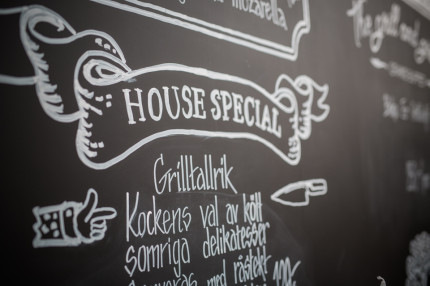 mozarella
the grill and
HOUSE SPECIAL
Grilltallrik
Kockens val av kött
somriga delikatesser
med rostekt